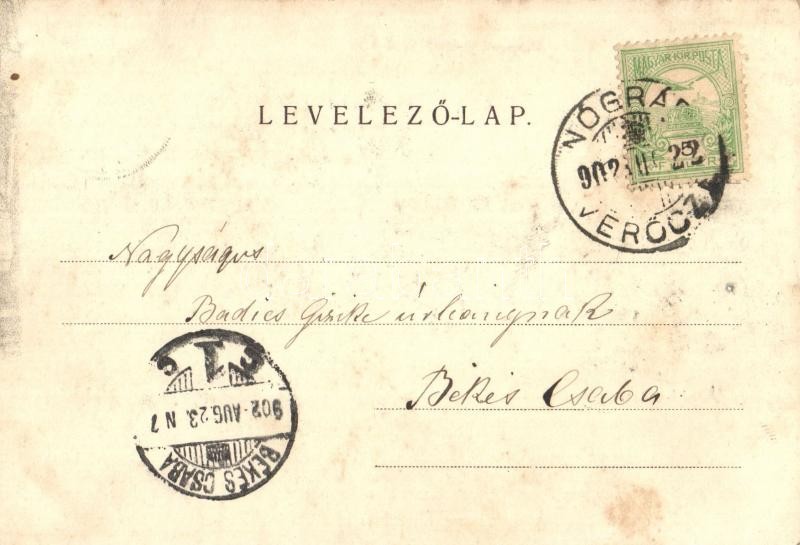 MAGYAR KIR. POSTA
LEVELEZŐ-LAP.
NÓGRÁD
902
22
VERŐCZE
Nagyságos
Badics Gizike úrhangynak
Békés Csaba
C 1 C
902 - AUG. 23. N 7
BÉKÉS CSABA